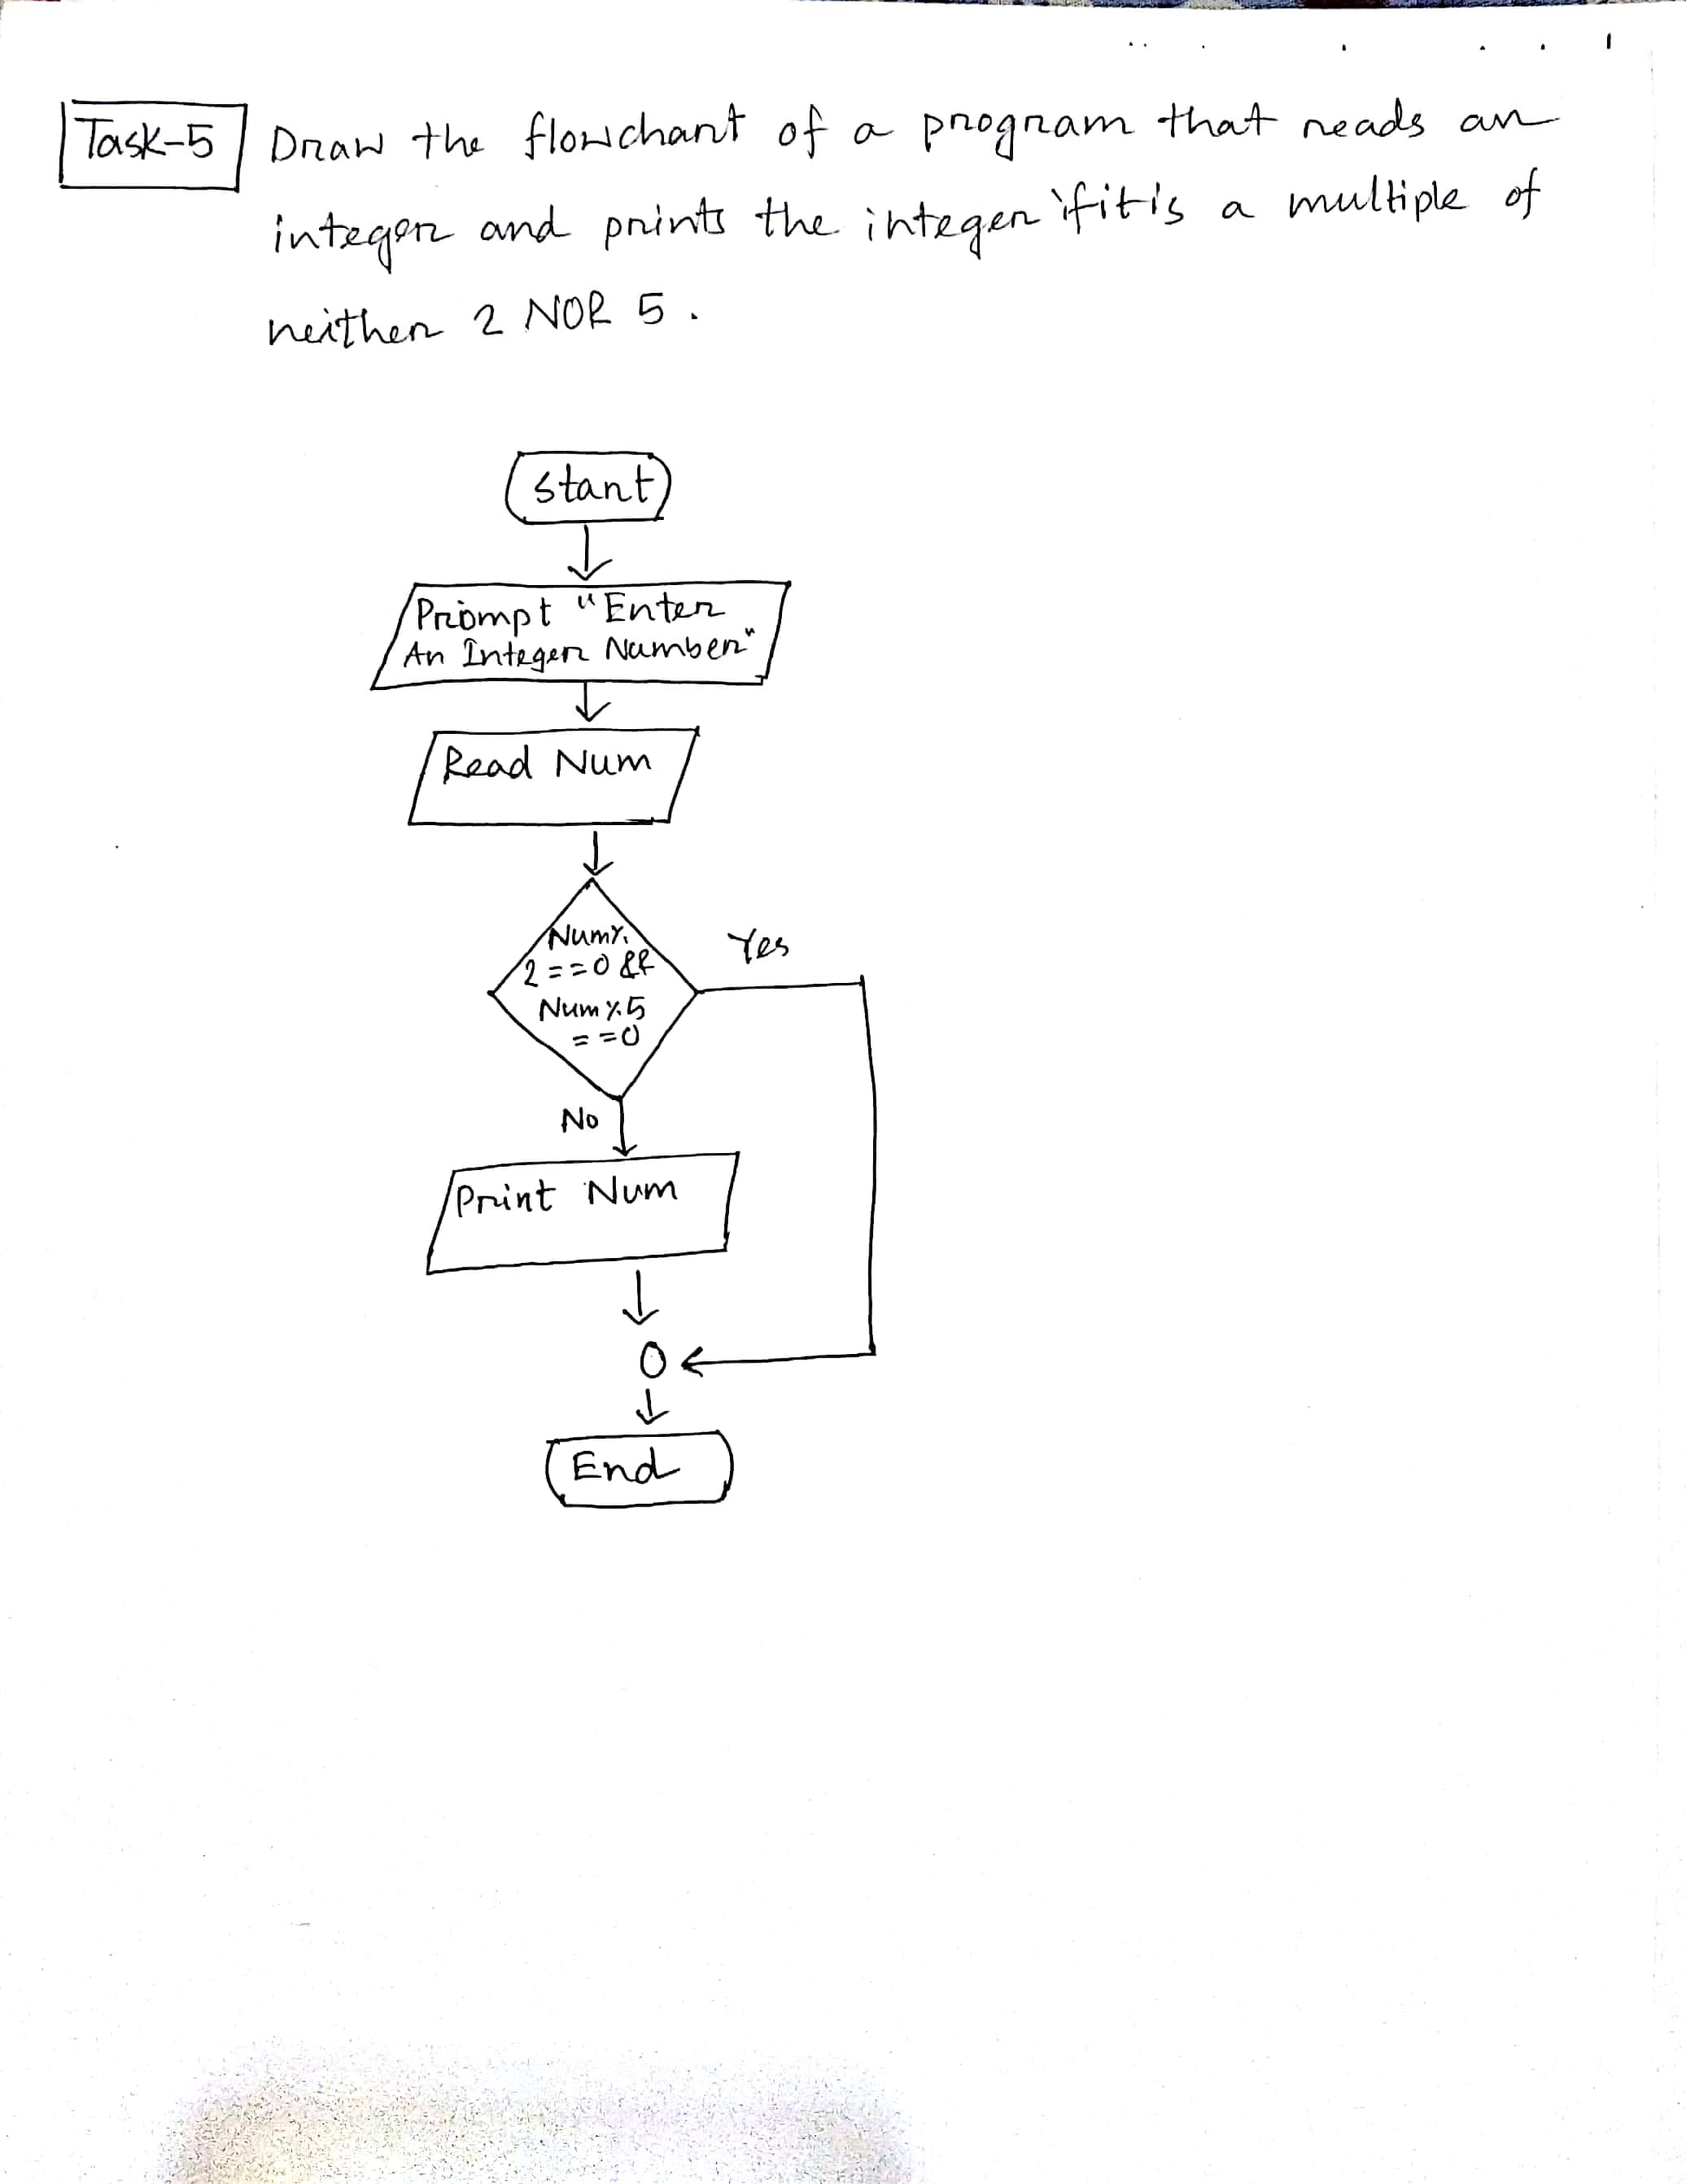 Task-5 Draw the flowchart of a program that reads an
integer and prints the integer if it is a multiple of
neither 2 NOR 5.
Start
Prompt "Enter
An Integer Number"
Read Num
Num%
2==0 &&
Num%5
==0
Yes
No
Print Num
End